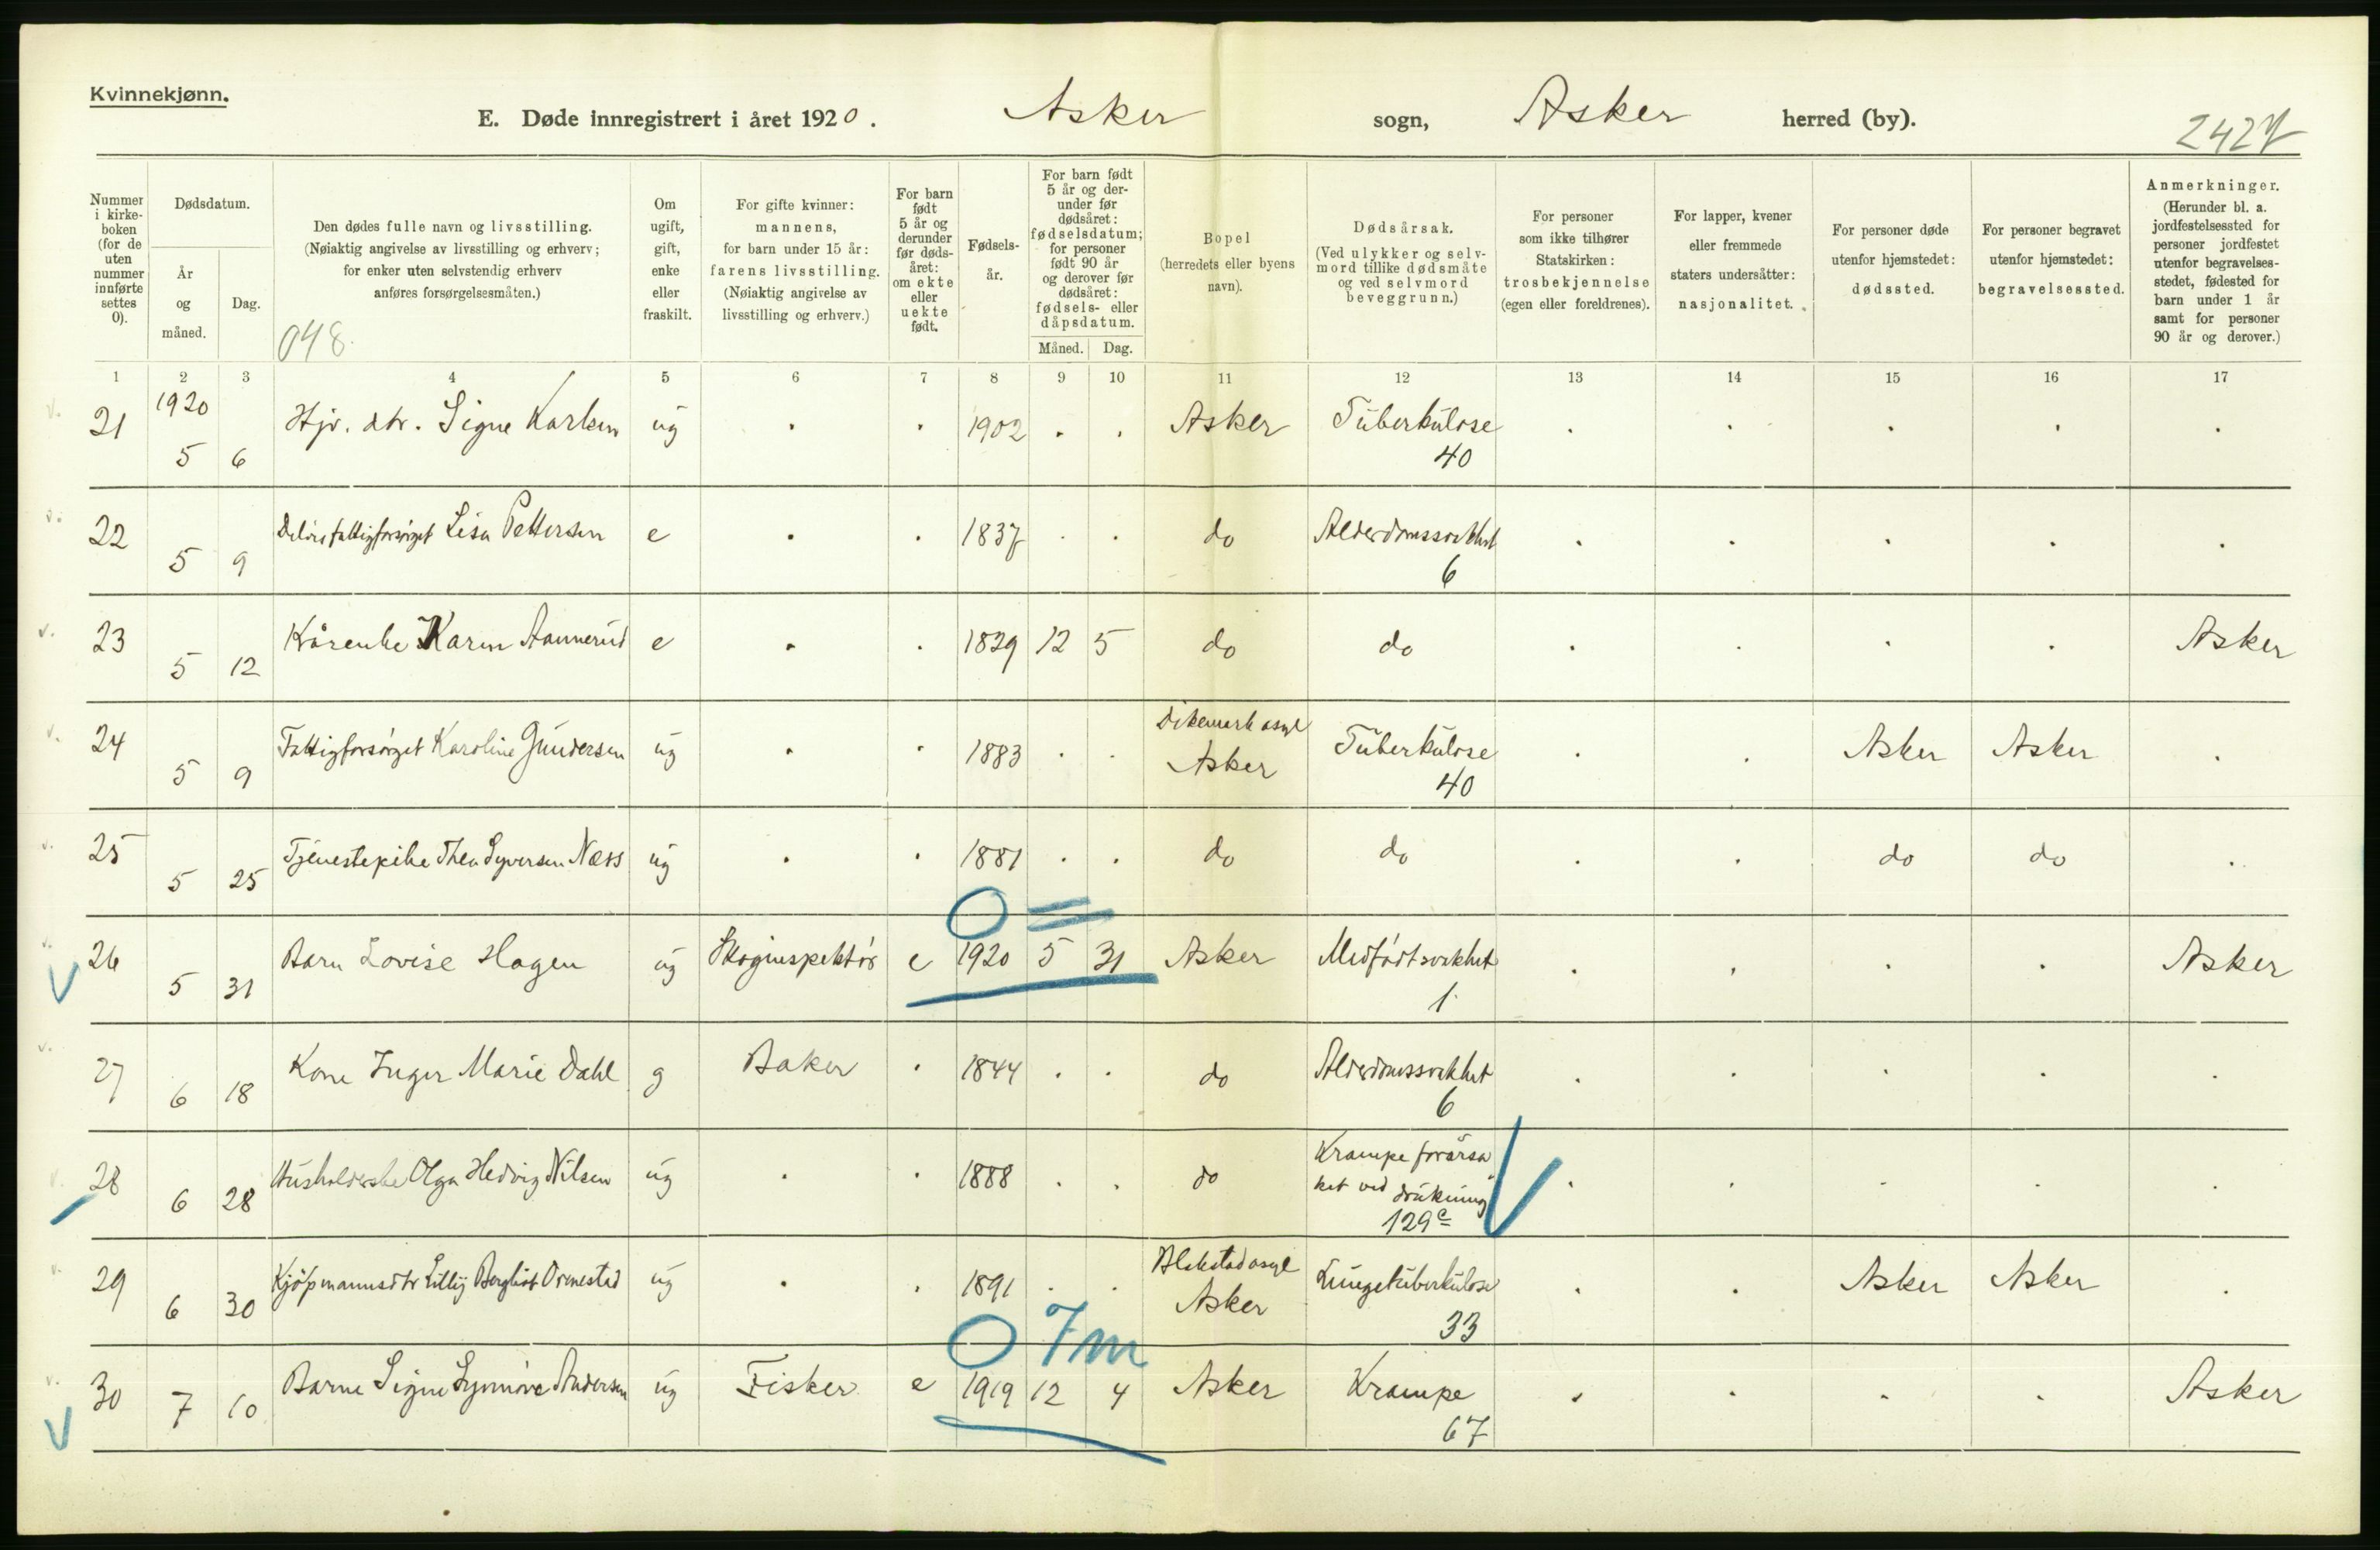 Kvinnekjønn.
E. Døde innregistrert i året 1920. Asker sogn, Asker herred (by).
2427
Nummer i kirke-boken (for de uten nummer innførte settes 0).
Dødsdatum.
År og måned.
Dag.
Den dødes fulle navn og livsstilling.
(Nøiaktig angivelse av livsstilling og erhverv;
for enker uten selvstendig erhverv
anføres forsørgelsesmåten.)
048.
Om ugift, gift, enke eller fraskilt.
For gifte kvinner:
mannens,
for barn under 15 år:
farens livsstilling.
(Nøiaktig angivelse av
livsstilling og erhverv.)
For barn født 5 år og derunder før døds-året: om ekte eller uekte født.
Fødsels-år.
For barn født 5 år og der-under før dødsåret: fødselsdatum; for personer født 90 år og derover før dødsåret: fødsels- eller dåpsdatum.
Måned. Dag.
Bopel
(herredets eller byens
navn).
Dødsårsak.
(Ved ulykker og selv-
mord tillike dødsmåte
og ved selvmord
beveggrunn.)
For personer
som ikke tilhører
Statskirken:
trosbekjennelse
(egen eller foreldrenes).
For lapper, kvener
eller fremmede
staters undersåtter:
nasjonalitet.
For personer døde
utenfor hjemstedet:
dødssted.
For personer begravet
utenfor hjemstedet:
begravelsessted.
Anmerkninger.
(Herunder bl. a.
jordfestelsessted for
personer jordfestet
utenfor begravelses-
stedet, fødested for
barn under 1 år
samt for personer
90 år og derover.)
1 2 3 4 5 6 7 8 9 10 11 12 13 14 15 16 17
21 1920 5 6 Hjv. dtr. Signe Karlsen ug . . 1902 . . Asker Tuberkulose 40 . . . . .
22 5 9 fattigforsørget Lisa Pettersen e . . 1837 . . do Alderdomssvakhet 6 . . . . .
23 5 12 Kårenke Karen Aamerud e . . 1829 12 5 do do . . . . Asker
24 5 9 Fattigforsørget Karoline Gundersen ug . . 1883 . . Dikemark asyl Asker Tuberkulose 40 . . Asker Asker .
25 5 25 Tjenestepike Thea Syversen Næss ug . . 1881 . . do do . . do do .
0 =
26 5 31 Barn Lovise Hagen ug Skoginspektør e 1920 5 31 Asker Medfødt svakhet 1 . . . . Asker
27 6 18 Kone Inger Marie Dahl g Baker . 1844 . . do Alderdomssvakhet 6 . . . . .
28 6 28 Husholderske Olga Hedvig Nilsen ug . . 1888 . . do Krampe forårsa ket ved drukning 129c . . . . .
29 6 30 Kjøpmannsdtr Lilly Bergliot Ormestad ug . . 1891 . . Blakstad asyl Asker Lungetuberkulose 33 . . Asker Asker .
0 7m
30 7 10 Barne Signe Synnøve Andersen ug Fisker e 1919 12 4 Asker Krampe 67 . . . . Asker